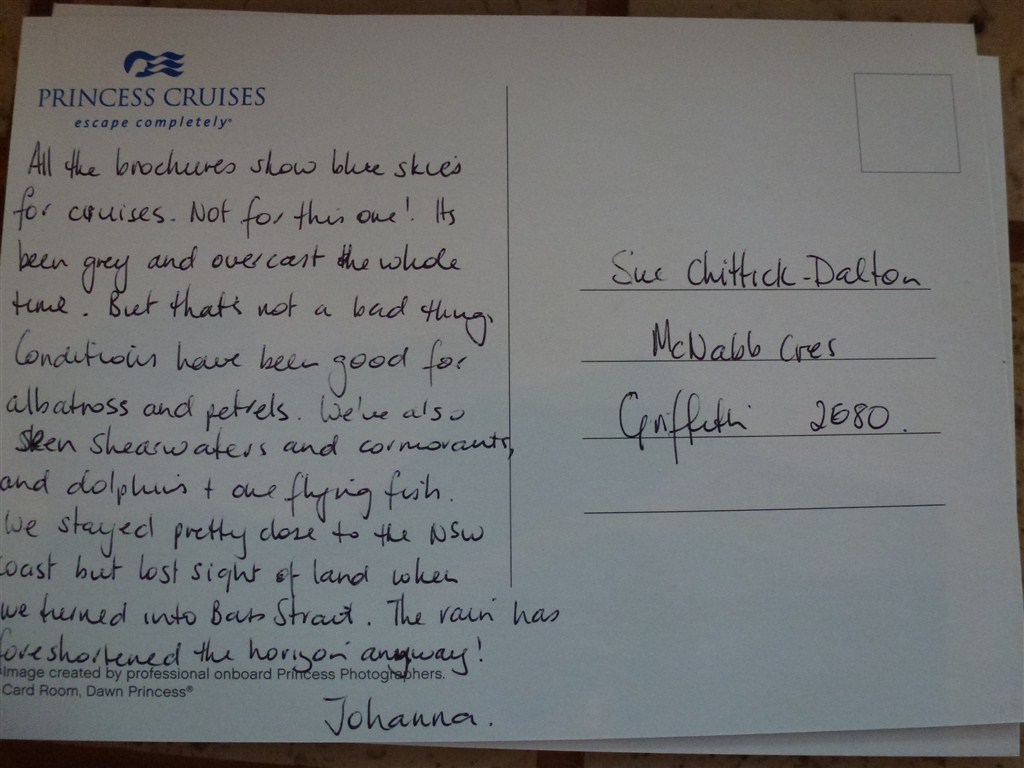 PRINCESS CRUISES
escape completely®
All the brochures show blue skies
for cruises. Not for this one! Its
been grey and overcast the whole
time. But that's not a bad thing.
Conditions have been good for
albatross and petrels. We've also
seen shearwaters and cormorants,
and dolphins + one flying fish.
We stayed pretty close to the NSW
coast but lost sight of land when
we turned into Bass Strait. The rain has
foreshortened the horizon anyway!
Image created by professional onboard Princess Photographers.
Card Room, Dawn Princess®
Johanna.
Sue Chittick-Dalton
McNabb Cres
Griffith 2680.